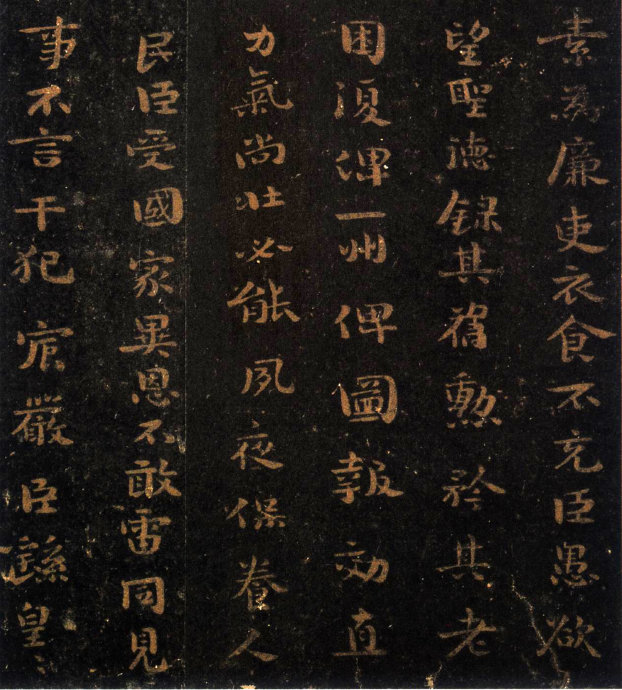 素為廉吏衣食不充臣愚欲
望聖德録其舊勳矜其老
困復俾一州俾圖報効直
力氣尚壯必能夙夜保養人
民臣受國家異恩不敢雷同見
事不言干犯宸嚴臣繇皇